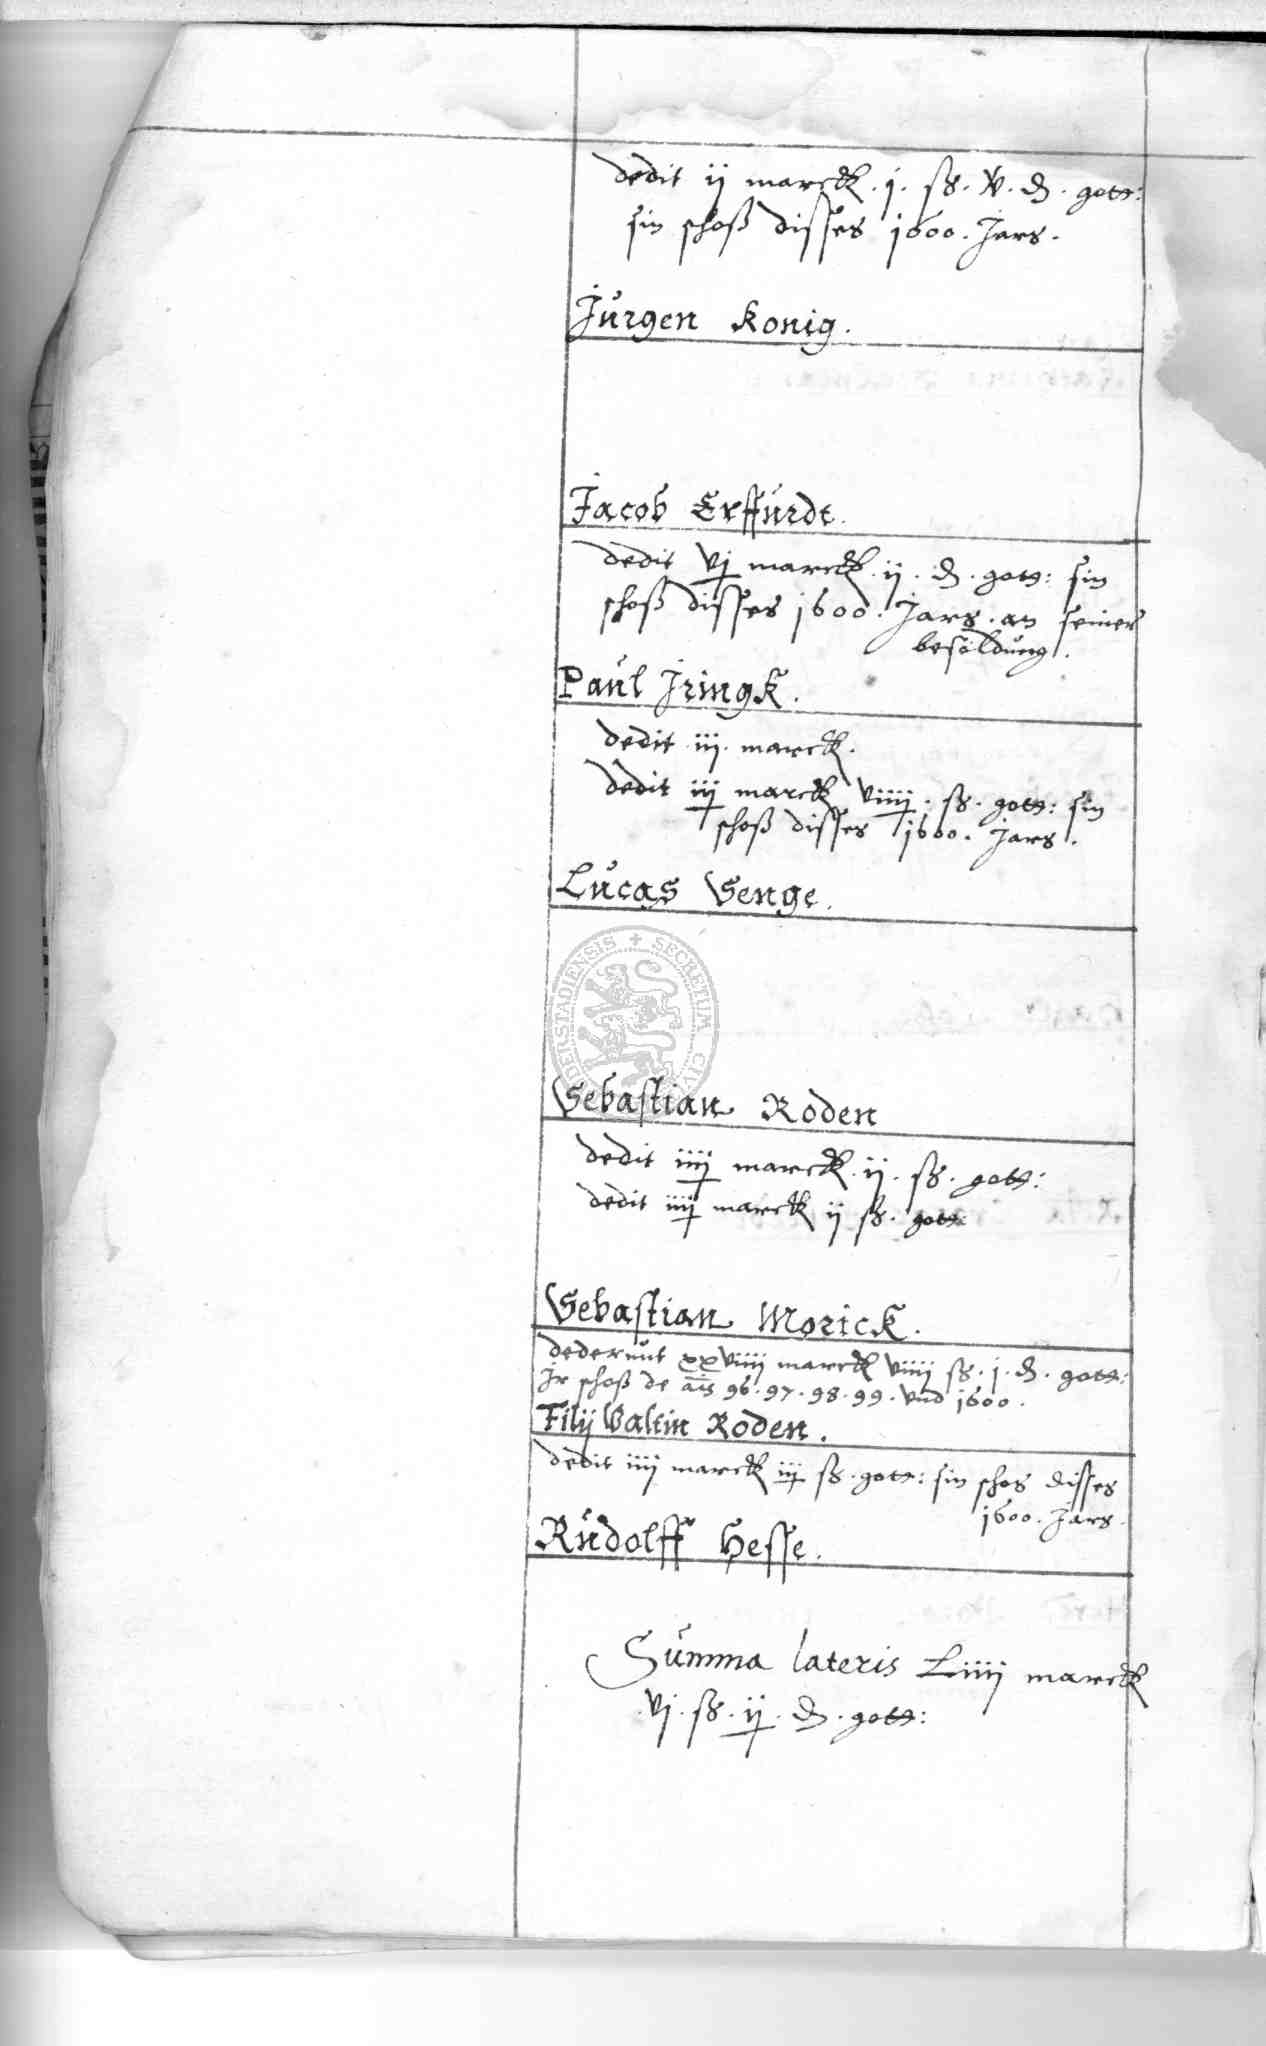 dedit ij marck . j . ß . v . d . gott:
sin schoß disses 1600. Jars.
Jürgen Konig.
Jacob Erffürdt.
dedit vj marck . ij . d . gott: sin
schoß disses 1600. Jars . an seiner
besoldung.
Paül Jringk.
dedit iij marck.
dedit iij marck viiij . ß . gott: sin
schoß disses 1600. Jars.
Lücas Senge.
SECRETUM
Sebastian Roden
dedit iiij marck . ij . ß . gott:
dedit iiij marck ij ß . gott:
Sebastian Morick.
dederunt xxviiij marck viiij ß . j . d . gott:
Jr schoß de ais 96 . 97 . 98 . 99 . vnd 1600.
Filij Valtin Roden.
dedit iiij marck iij ß . gott: sin schos disses
1600. Jars.
Rüdolff Hesse.
Sümma lateris Liiij marck
vj . ß . ij . d . gott: